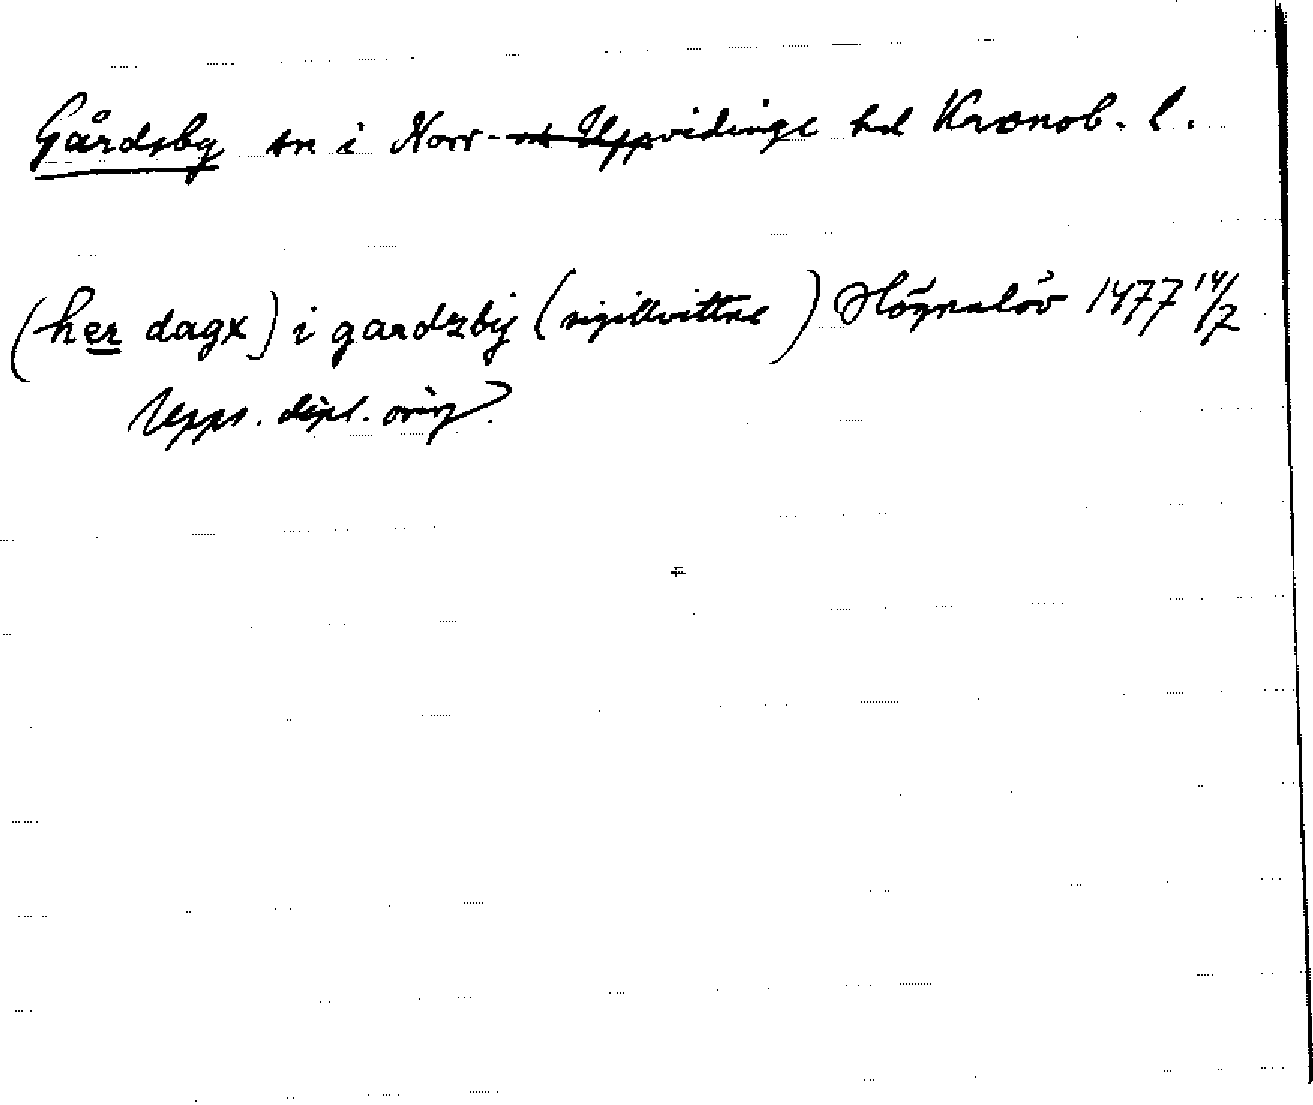 Gårdsby sn i Norrvidinge hd Kronob. l.
(her dagx) i gardzbÿ (sigillvittne) Högnalöv 1477 14/2
Upps. dipl. orig